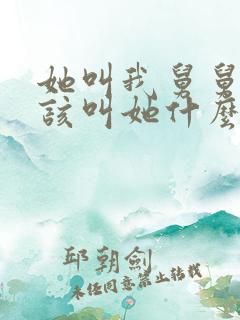 她叫我舅舅
该叫她什麽
邱朝剑
未经同意禁止转载